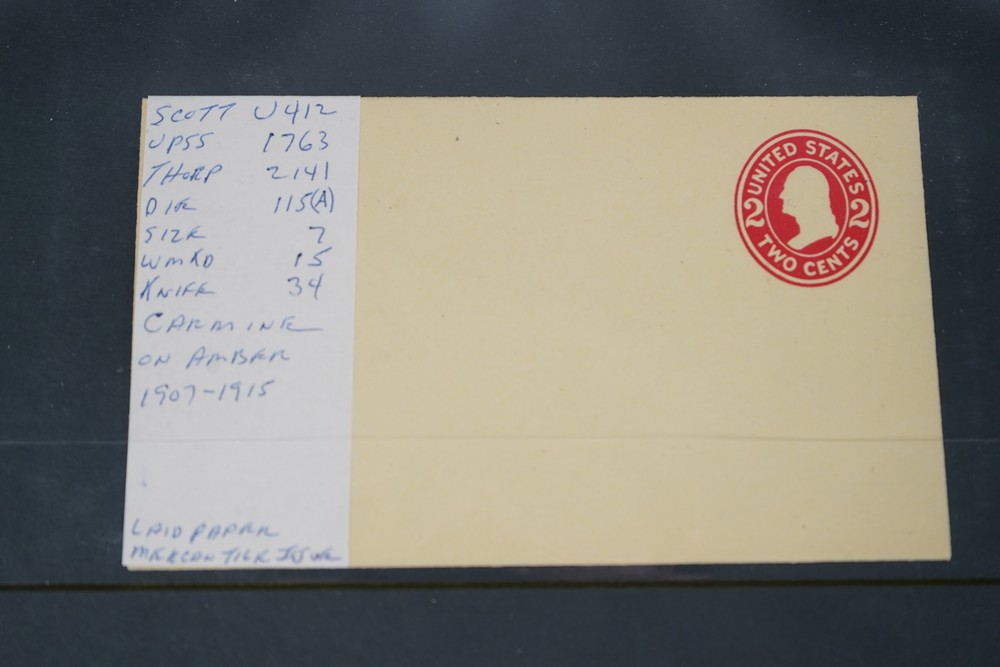 SCOTT U412
UPSS 1763
THORP 2141
DIE 115(A)
SIZE 7
WMKD 15
KNIFE 34
CARMINE
ON AMBER
1907-1915
LAID PAPER
MERCANTILE ISSUE
UNITED STATES
2 2
TWO CENTS